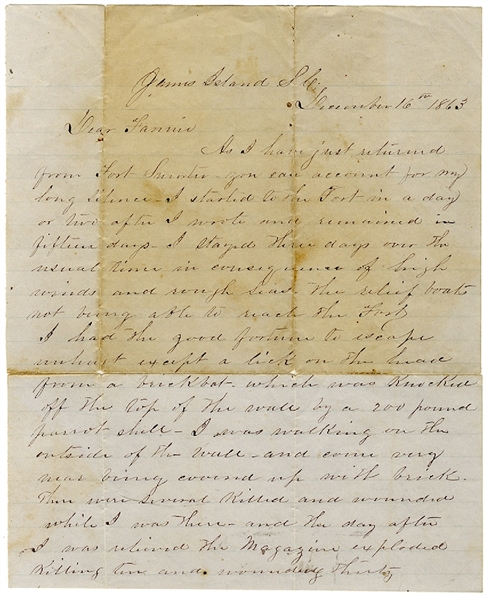 James Island S.C.
December 16th 1863
Dear Fannie
As I have just returned
from Fort Sumter you can account for my
long silence - I started to the Fort in a day
or two after I wrote and remained in
fifteen days - I stayed three days over the
usual time in consequence of high
winds and rough seas the relief boats
not being able to reach the Fort
I had the good fortune to escape
unhurt except a lick on the head
from a brickbat - which was knocked
off the top of the wall by a 200 pound
parrot shell - I was walking on the
outside of the wall - and come very
near being covered up with brick.
There were several killed and wounded
while I was there - and the day after
I was relieved the Magazine exploded
killing ten and wounding thirty